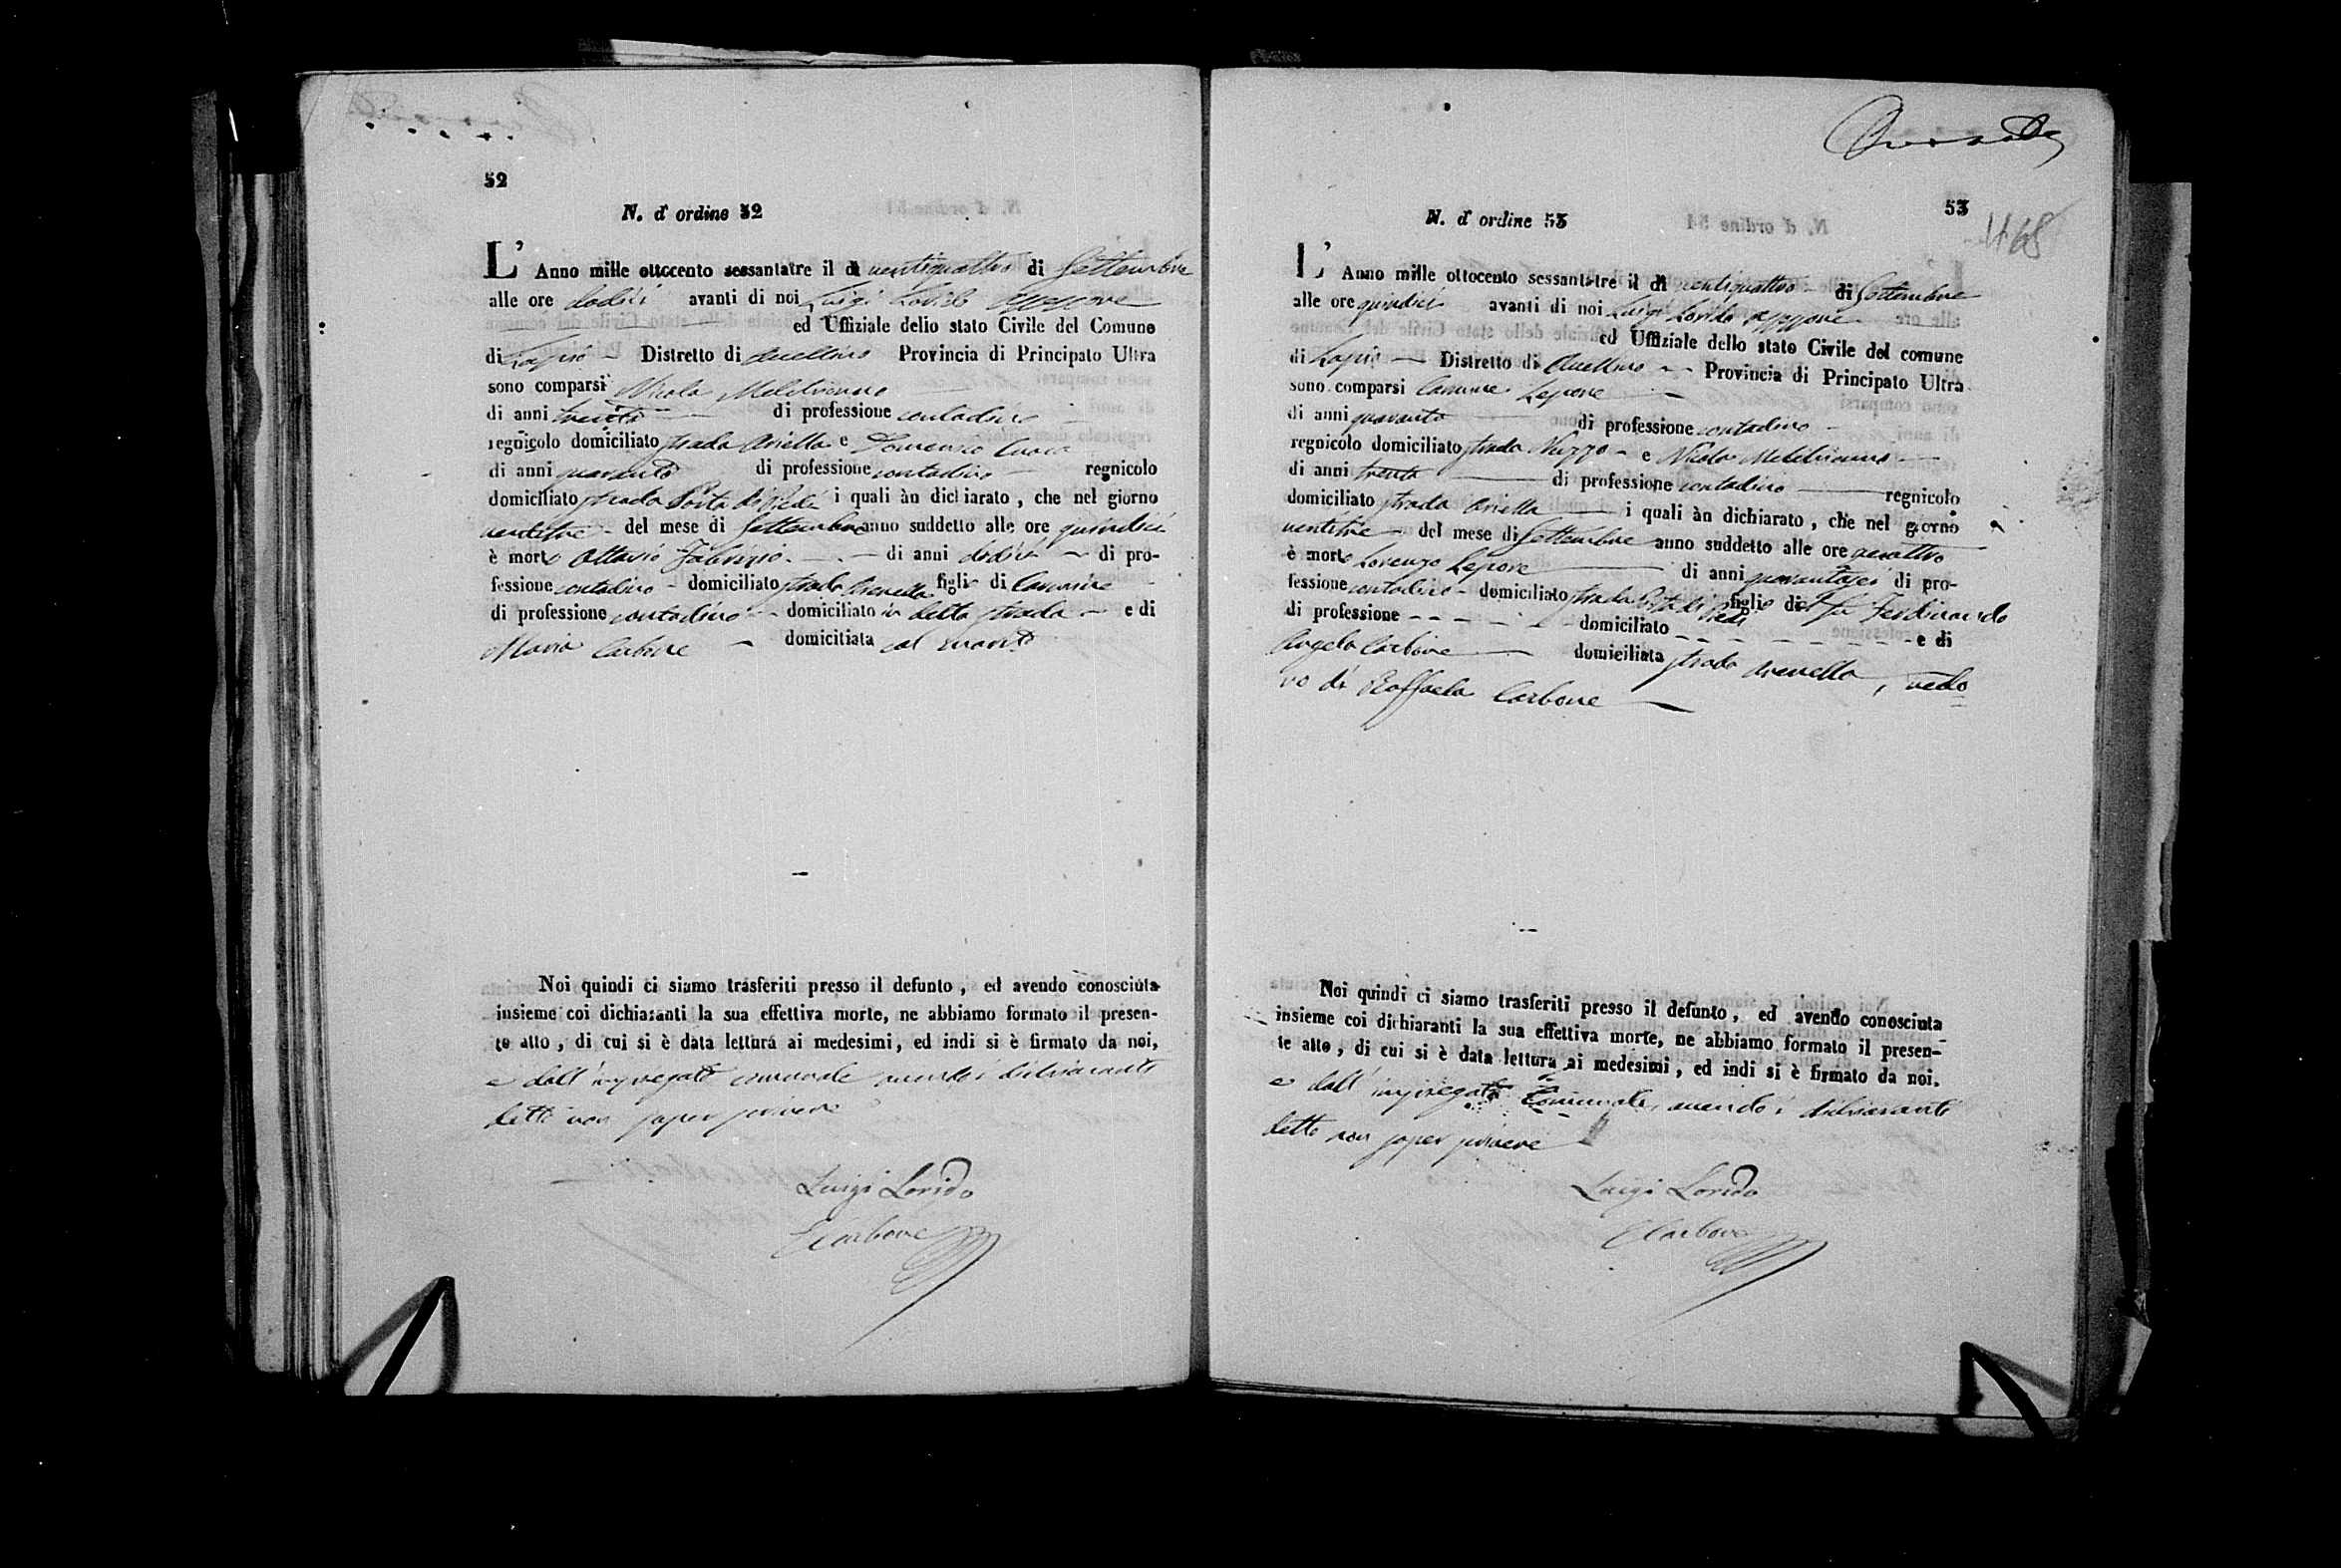 52
N. d' ordine 52
L' Anno mille ottocento sessantatre il dì ventiquattro di Settembre
alle ore dodici avanti di noi Luigi Lorido Assessore
ed Uffiziale dello stato Civile del Comune
di Lapio Distretto di Avellino Provincia di Principato Ultra
sono comparsi Nicola Meldrianno
di anni trenta di professione contadino
regnicolo domiciliato strada Ariella e Domenico
di anni quaranta di professione contadino regnicolo
domiciliato strada Porta di Piedi i quali àn dichiarato, che nel giorno
ventitre del mese di Settembre anno suddetto alle ore quindici
è morto Ottavio Fabrizio di anni dodici di pro-
fessione contadino domiciliato strada Arenella figlio di Carmine
di professione contadino domiciliato in detta strada e di
Maria Carbone domicitiata col marito
Noi quindi ci siamo trasferiti presso il defunto, ed avendo conosciuta
insieme coi dichiaranti la sua effettiva morte, ne abbiamo formato il presen-
te atto, di cui si è data lettura ai medesimi, ed indi si è firmato da noi,
e dall' impiegato comunale avendo i dichiaranti
detto non saper scrivere
Luigi Lorido
E Carbone
53
468
N. d' ordine 53
L' Anno mille ottocento sessantatre il dì ventiquattro di Settembre
alle ore quindici avanti di noi Luigi Lorido Assessore
ed Uffiziale dello stato Civile del comune
di Lapio Distretto di Avellino Provincia di Principato Ultra
sono comparsi Carmine Lepore
di anni quaranta di professione contadino
regnicolo domiciliato strada Nuzzo e Nicola Meldrianno
di anni trenta di professione contadino regnicolo
domiciliato strada Ariella i quali àn dichiarato, che nel giorno
ventitre del mese di Settembre anno suddetto alle ore quattro
è morto Lorenzo Lepore di anni quarantasei di pro-
fessione contadino domiciliato strada Porta di Piedi figlio del fu Ferdinando
di professione domiciliato e di
Angela Carbone domiciliata strada Arenella, vedo
vo di Raffaela Carbone
Noi quindi ci siamo trasferiti presso il defunto, ed avendo conosciuta
insieme coi dichiaranti la sua effettiva morte, ne abbiamo formato il presen-
te atto, di cui si è data lettura ai medesimi, ed indi si è firmato da noi.
e dall' impiegato Comunale, avendo i dichiaranti
detto non saper scrivere
Luigi Lorido
E Carbone